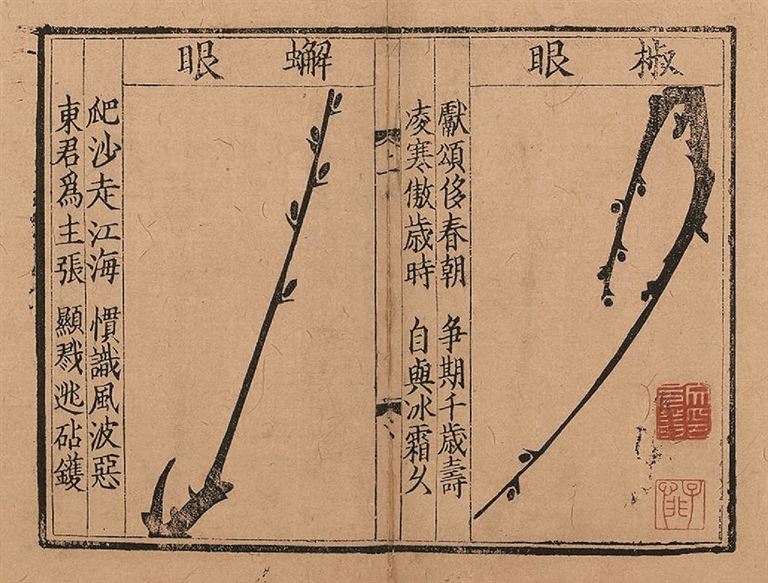 椒眼
獻頌侈春朝 争期千歲壽
凌寒傲歲時 自與冰霜久
上
蠏眼
爬沙走江海 慣識風波惡
東君爲主張 顯戮逃砧鑊